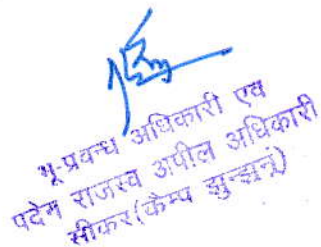 भू-प्रबन्ध अधिकारी एव
पदेन राजस्व अपील अधिकारी
सीकर(कैम्प झुन्झुनू)